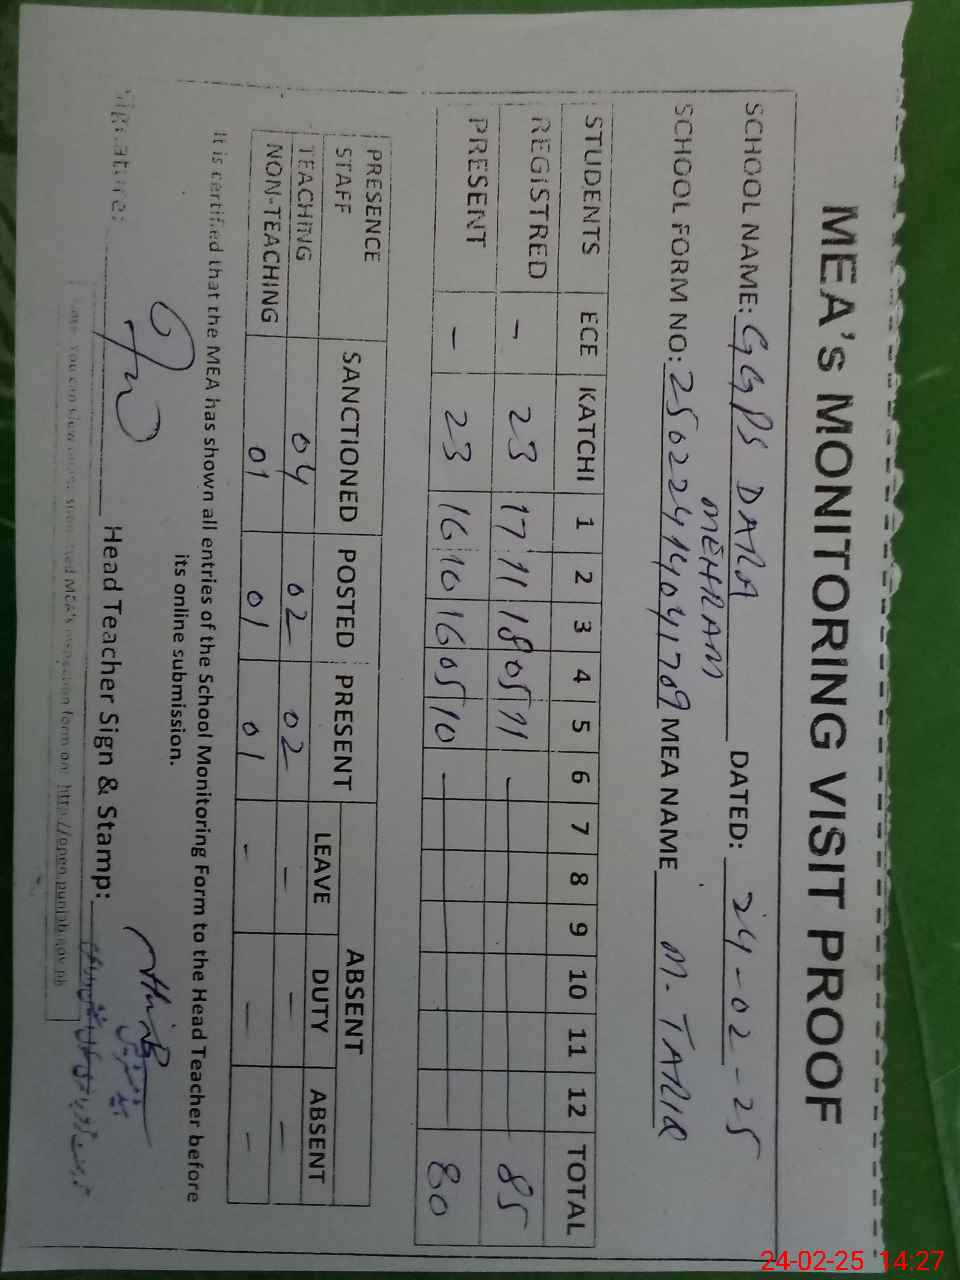 MEA'S MONITORING VISIT PROOF
SCHOOL NAME: GGPS DARA MEHRAM DATED: 24-02-25
SCHOOL FORM NO: MEA NAME M. TARIQ
STUDENTS ECE KATCHI 1 2 3 4 5 6 7 8 9 10 11 12 TOTAL
REGISTRED - 23 17 11 18 05 11 - 85
PRESENT - 23 16 10 16 05 10 - 80
PRESENCE STAFF SANCTIONED POSTED PRESENT ABSENT
LEAVE DUTY ABSENT
TEACHING 04 02 02 - - -
NON-TEACHING 01 01 01 - - -
It is certified that the MEA has shown all entries of the School Monitoring Form to the Head Teacher before
its online submission.
Signature: Head Teacher Sign & Stamp:
You can view MEA's inspection form on: http://open.punjab.gov.pk
24-02-25 14:27